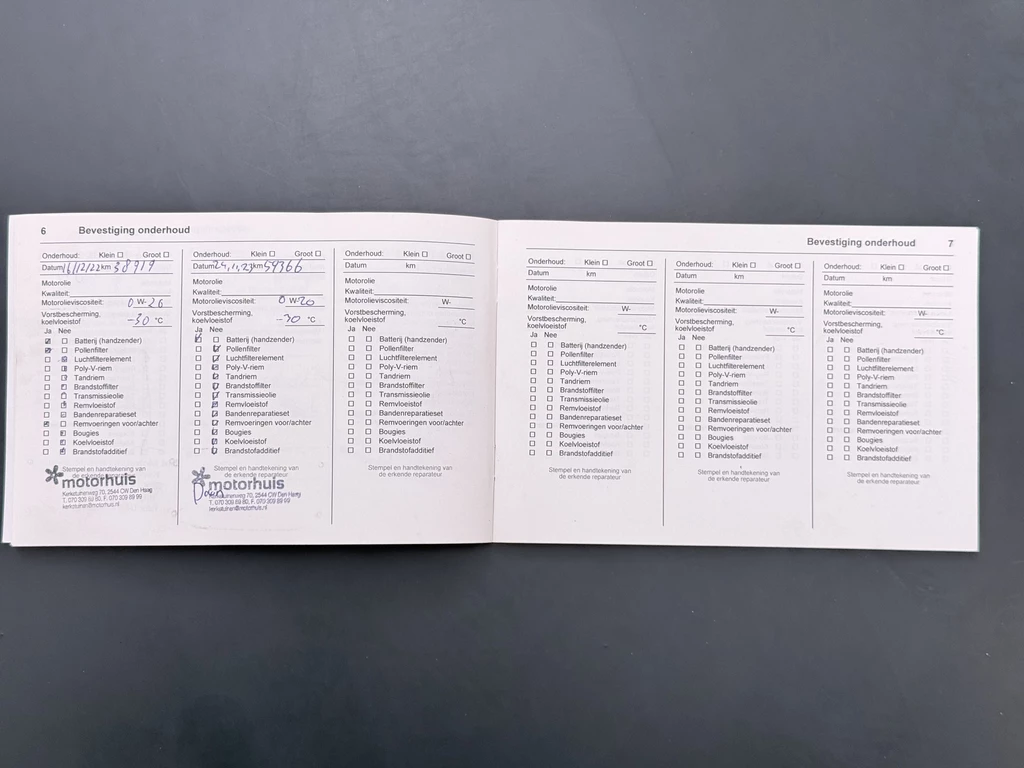 6 Bevestiging onderhoud
Onderhoud: Klein ☐ Groot ☐
Datum 16/12/22 km 38919
Motorolie
Kwaliteit:
Motorolieviscositeit: 0 W- 20
Vorstbescherming,
koelvloeistof -30 °C
Ja Nee
Batterij (handzender)
Pollenfilter
Luchtfilterelement
Poly-V-riem
Tandriem
Brandstoffilter
Transmissieolie
Remvloeistof
Bandenreparatieset
Remvoeringen voor/achter
Bougies
Koelvloeistof
Brandstofadditief
Stempel en handtekening van
de erkende reparateur
motorhuis
Kerketuinenweg 70, 2544 CW Den Haag
T. 070 309 89 80, F. 070 309 89 99
kerketuinen@motorhuis.nl
Onderhoud: Klein ☐ Groot ☐
Datum 24,11,23 km 59366
Motorolie
Kwaliteit:
Motorolieviscositeit: 0 W- 20
Vorstbescherming,
koelvloeistof -30 °C
Ja Nee
Batterij (handzender)
Pollenfilter
Luchtfilterelement
Poly-V-riem
Tandriem
Brandstoffilter
Transmissieolie
Remvloeistof
Bandenreparatieset
Remvoeringen voor/achter
Bougies
Koelvloeistof
Brandstofadditief
Stempel en handtekening van
de erkende reparateur
motorhuis
70, 2544 CW Den Haag
T. 070 309 89 80, F. 070 309 89 99
kerketuinen@motorhuis.nl
Onderhoud: Klein ☐ Groot ☐
Datum km
Motorolie
Kwaliteit:
Motorolieviscositeit: W-
Vorstbescherming,
koelvloeistof °C
Ja Nee
Batterij (handzender)
Pollenfilter
Luchtfilterelement
Poly-V-riem
Tandriem
Brandstoffilter
Transmissieolie
Remvloeistof
Bandenreparatieset
Remvoeringen voor/achter
Bougies
Koelvloeistof
Brandstofadditief
Stempel en handtekening van
de erkende reparateur
Bevestiging onderhoud 7
Onderhoud: Klein ☐ Groot ☐
Datum km
Motorolie
Kwaliteit:
Motorolieviscositeit: W-
Vorstbescherming,
koelvloeistof °C
Ja Nee
Batterij (handzender)
Pollenfilter
Luchtfilterelement
Poly-V-riem
Tandriem
Brandstoffilter
Transmissieolie
Remvloeistof
Bandenreparatieset
Remvoeringen voor/achter
Bougies
Koelvloeistof
Brandstofadditief
Stempel en handtekening van
de erkende reparateur
Onderhoud: Klein ☐ Groot ☐
Datum km
Motorolie
Kwaliteit:
Motorolieviscositeit: W-
Vorstbescherming,
koelvloeistof °C
Ja Nee
Batterij (handzender)
Pollenfilter
Luchtfilterelement
Poly-V-riem
Tandriem
Brandstoffilter
Transmissieolie
Remvloeistof
Bandenreparatieset
Remvoeringen voor/achter
Bougies
Koelvloeistof
Brandstofadditief
Stempel en handtekening van
de erkende reparateur
Onderhoud: Klein ☐ Groot ☐
Datum km
Motorolie
Kwaliteit:
Motorolieviscositeit: W-
Vorstbescherming,
koelvloeistof °C
Ja Nee
Batterij (handzender)
Pollenfilter
Luchtfilterelement
Poly-V-riem
Tandriem
Brandstoffilter
Transmissieolie
Remvloeistof
Bandenreparatieset
Remvoeringen voor/achter
Bougies
Koelvloeistof
Brandstofadditief
Stempel en handtekening van
de erkende reparateur